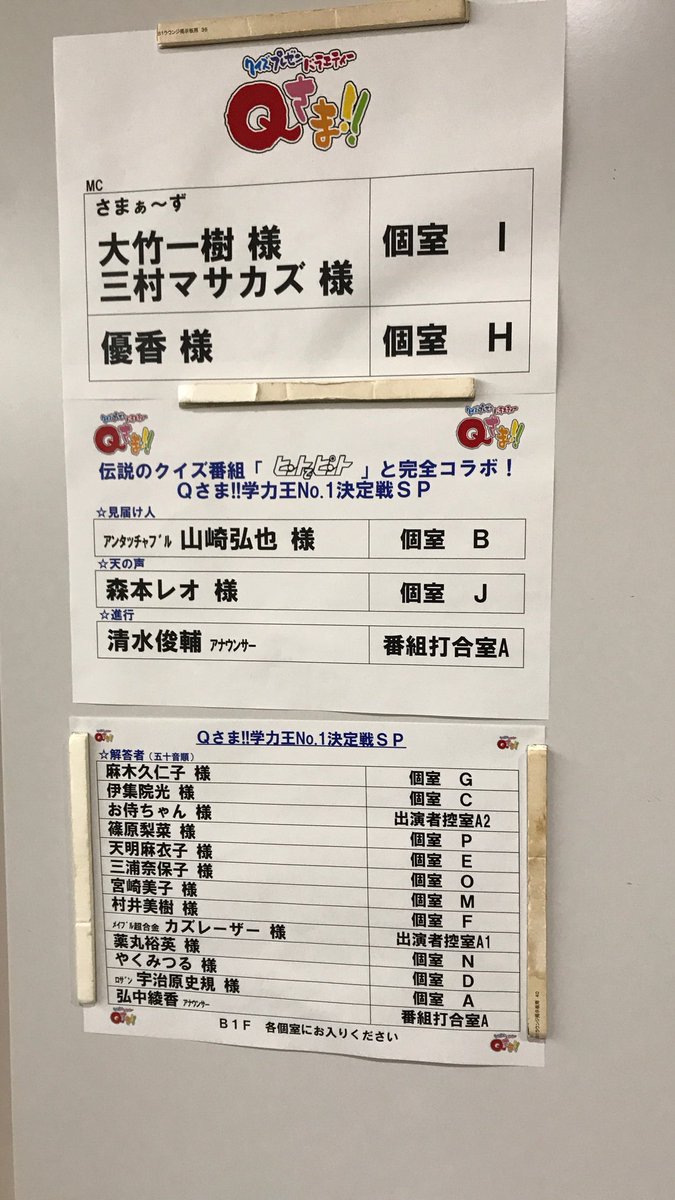 B1ラウンジ掲示板用 36
クイズプレゼンバラエティー
Qさま!!
MC
さまぁ～ず
大竹一樹 様
三村マサカズ 様
個室 I
優香 様
個室 H
クイズプレゼンバラエティー
Qさま!!
クイズプレゼンバラエティー
Qさま!!
伝説のクイズ番組「 ヒントでピント 」と完全コラボ！
Qさま!!学力王No.1決定戦ＳＰ
☆見届け人
ｱﾝﾀｯﾁｬﾌﾞﾙ 山崎弘也 様 個室 B
☆天の声
森本レオ 様 個室 J
☆進行
清水俊輔 ｱﾅｳﾝｻｰ 番組打合室A
Qさま!!
Qさま!!学力王No.1決定戦ＳＰ
Qさま!!
☆解答者（五十音順）
麻木久仁子 様 個室 G
伊集院光 様 個室 C
お侍ちゃん 様 出演者控室A2
篠原梨菜 様 個室 P
天明麻衣子 様 個室 E
三浦奈保子 様 個室 O
宮崎美子 様 個室 M
村井美樹 様 個室 F
ﾒｲﾌﾟﾙ超合金 カズレーザー 様 出演者控室A1
薬丸裕英 様 個室 N
やくみつる 様 個室 D
ﾛｻﾞﾝ 宇治原史規 様 個室 A
弘中綾香 ｱﾅｳﾝｻｰ 番組打合室A
Qさま!!
Ｂ１Ｆ 各個室にお入りください
Qさま!!
B1ラウンジ掲示板用 40